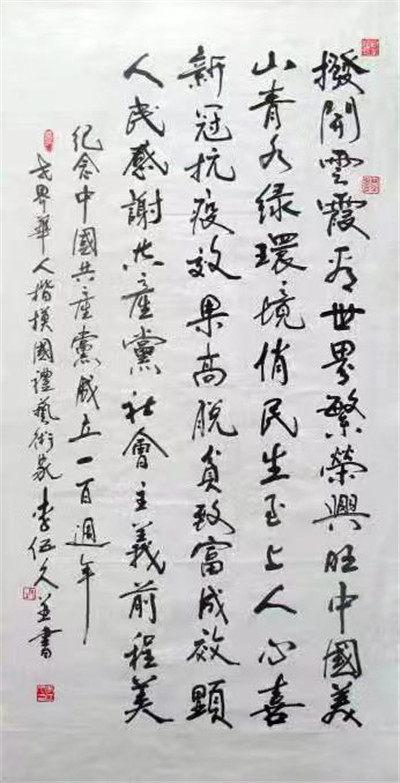 撥開雲霞看世界繁榮興旺中國美
山青水绿環境俏民生至上人心喜
新冠抗疫效果高脱貧致富成效顯
人民感謝共產黨社會主義前程美
纪念中國共産黨成立一百週年
世界華人楷模國禮藝術家李伍久並書